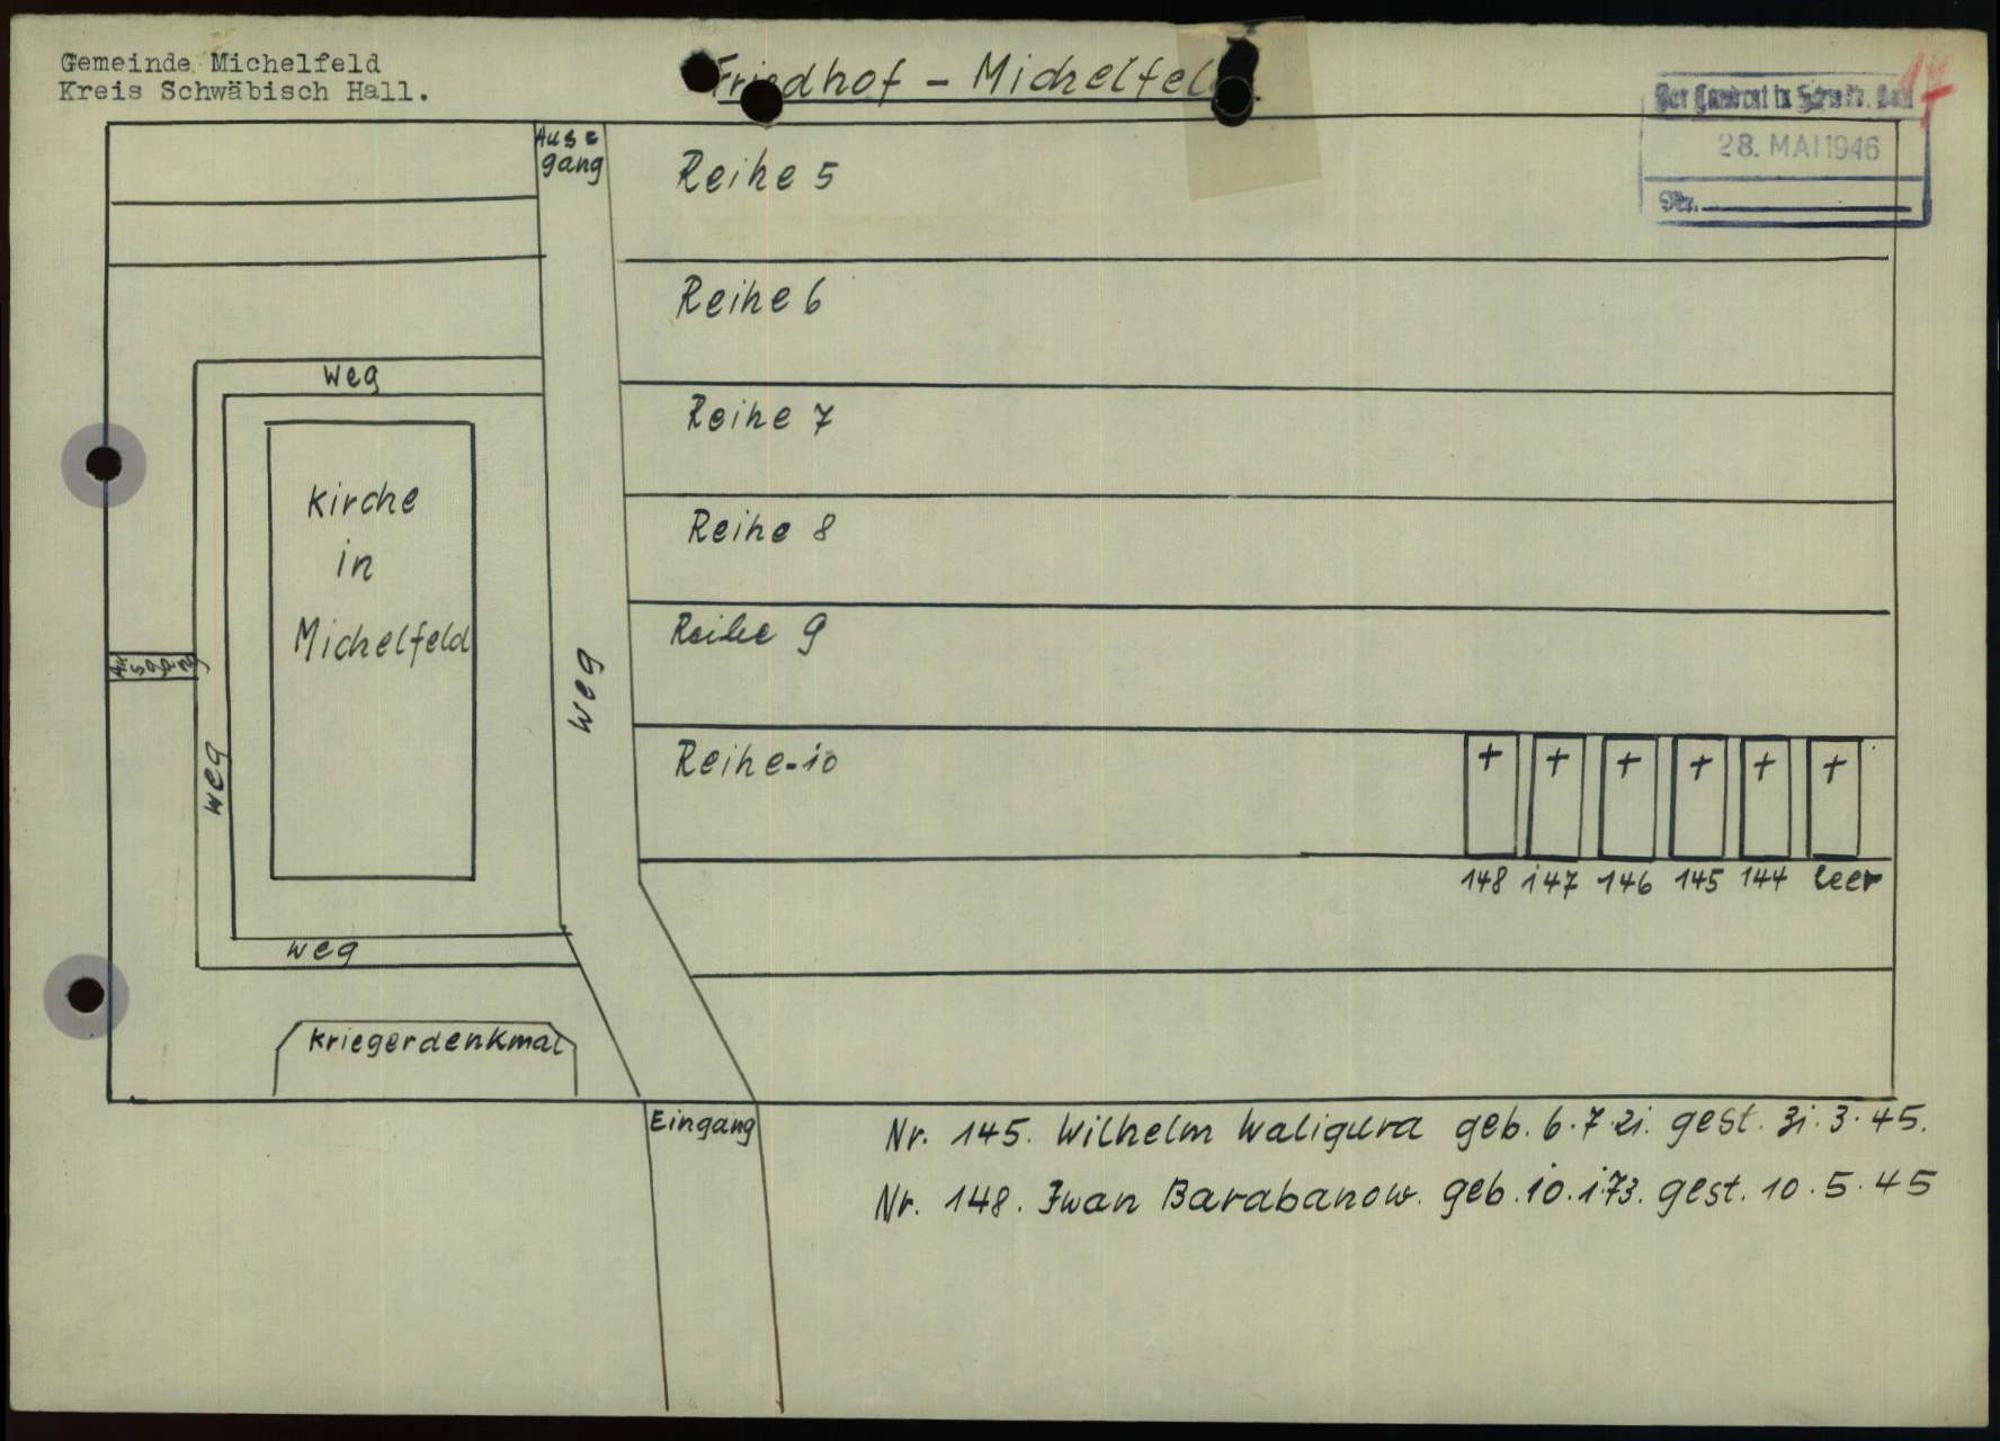 Gemeinde Michelfeld
Kreis Schwäbisch Hall.
Friedhof - Michelfeld
Der Landrat in Schwäb. Hall
28. MAI 1946
Nr.
Aus=
gang
Reihe 5
Reihe 6
Weg
Reihe 7
Kirche
in
Michelfeld
Reihe 8
Reihe 9
Ausgang
Weg
Weg
Reihe-10
+ + + + + +
148 147 146 145 144 leer
Weg
Kriegerdenkmal
Eingang
Nr. 145. Wilhelm Waligura geb. 6.7.21. gest. 31.3.45.
Nr. 148. Iwan Barabanow. geb. 10.1.73. gest. 10.5.45